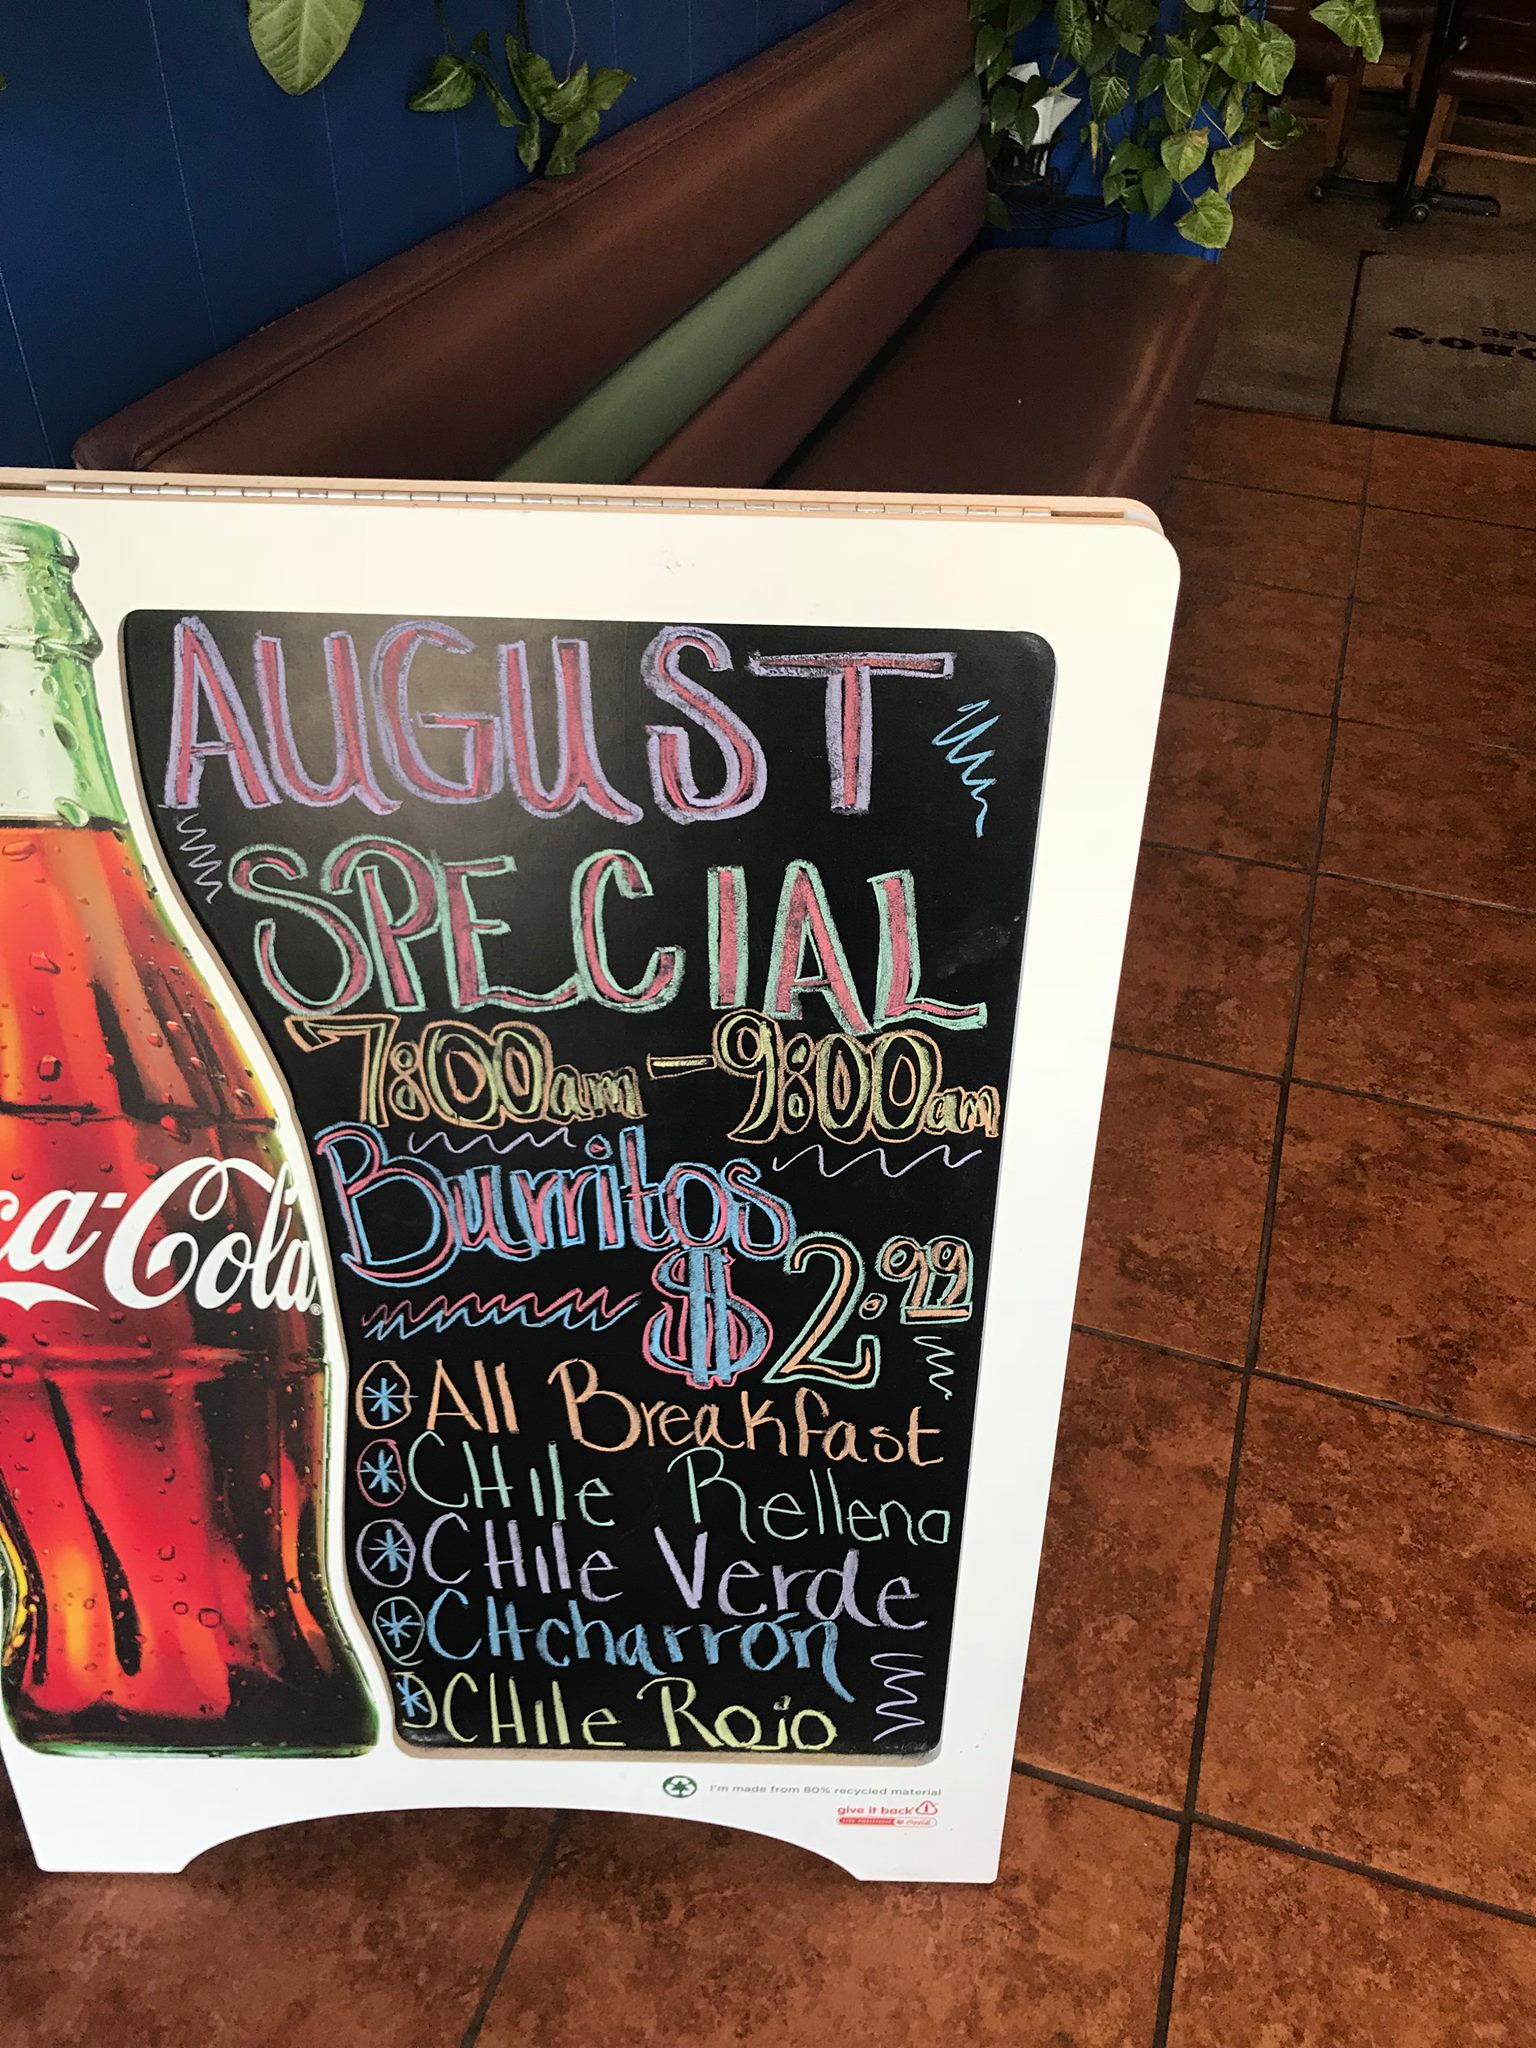 AUGUST
SPECIAL
7:00am - 9:00am
Burritos
$2.99
All Breakfast
CHile Relleno
CHile Verde
CHcharrón
CHile Rojo
ca-Cola
I'm made from 80% recycled material
give it back
OBO'S
AFE